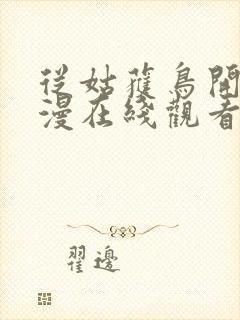 從姑獲鳥開
漫在綫觀看
翟邊